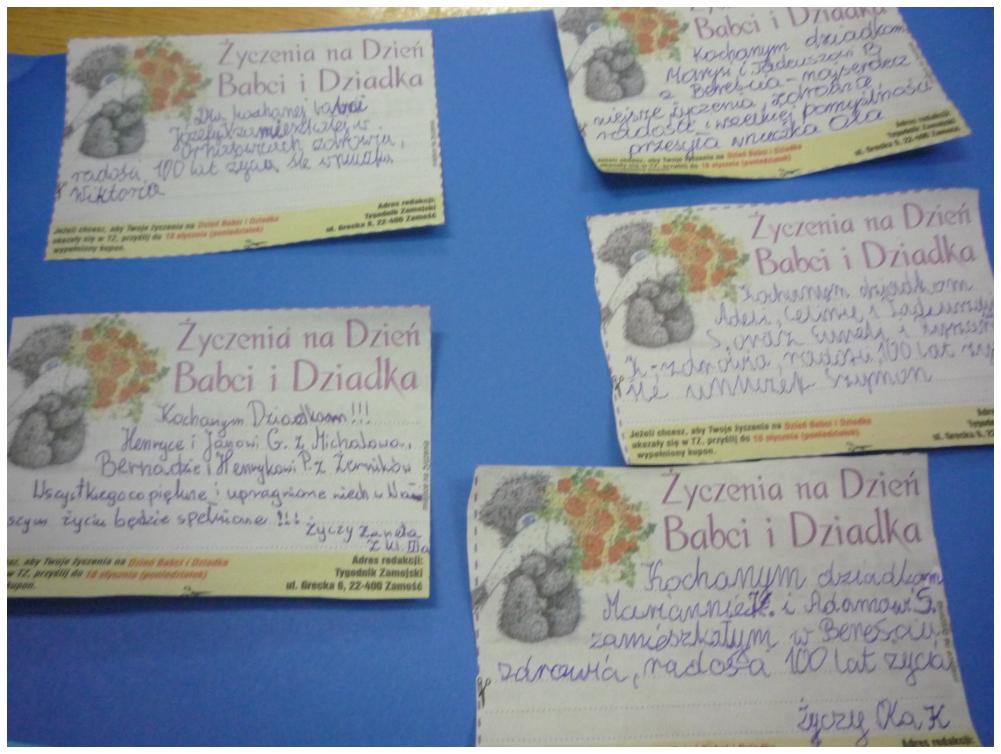 Życzenia na Dzień
Babci i Dziadka
Dla kochanej babci
zdrowia,
radości, 100 lat życia śle wnuczka
Wiktoria
Adres redakcji:
Tygodnik Zamojski
ul. Grecka 6, 22-400 Zamość
Jeżeli chcesz, aby Twoje życzenia na Dzień Babci i Dziadka
ukazały się w TZ, przyślij do 18 stycznia (poniedziałek)
wypełniony kupon.
Życzenia na Dzień
Babci i Dziadka
Kochanym dziadkom
Marysi i Tadeuszom B
z Bereścia - najserdecz
niejsze życzenia, zdrowia
radości i wielkiej pomyślności
przesyła wnuczka Ola
Adres redakcji:
Tygodnik Zamojski
ul. Grecka 6, 22-400 Zamość
Jeżeli chcesz, aby Twoje życzenia na Dzień Babci i Dziadka
ukazały się w TZ, przyślij do 18 stycznia (poniedziałek)
Życzenia na Dzień
Babci i Dziadka
Kochanym dziadkom
Adeli, Celinie i Tadeuszowi
S, oraz
K - zdrowia, radości 100 lat
śle wnuczek Szymon
Jeżeli chcesz, aby Twoje życzenia na Dzień Babci i Dziadka
ukazały się w TZ, przyślij do 18 stycznia (poniedziałek)
wypełniony kupon.
ul. Grecka 6, 22
Życzenia na Dzień
Babci i Dziadka
Kochanym Dziadkom!!!
Henryce i Janowi G. z Michalowa,
Bernadzie i Henrykowi P. z Żerników
Wszystkiego co piękne i upragnione niech w Wa
szym życiu będzie spełnione!!!
Życzy Żaneta
z kl. IIIa
aby Twoje życzenia na Dzień Babci i Dziadka
w TZ, przyślij do 18 stycznia (poniedziałek)
kupon.
Adres redakcji:
Tygodnik Zamojski
ul. Grecka 6, 22-400 Zamość
Życzenia na Dzień
Babci i Dziadka
Kochanym dziadkom
Mariannie K. i Adamowi S.
zamieszkałym w Bereściu
zdrowia, radości 100 lat życia
życzy Ola K
Adres redakcji: